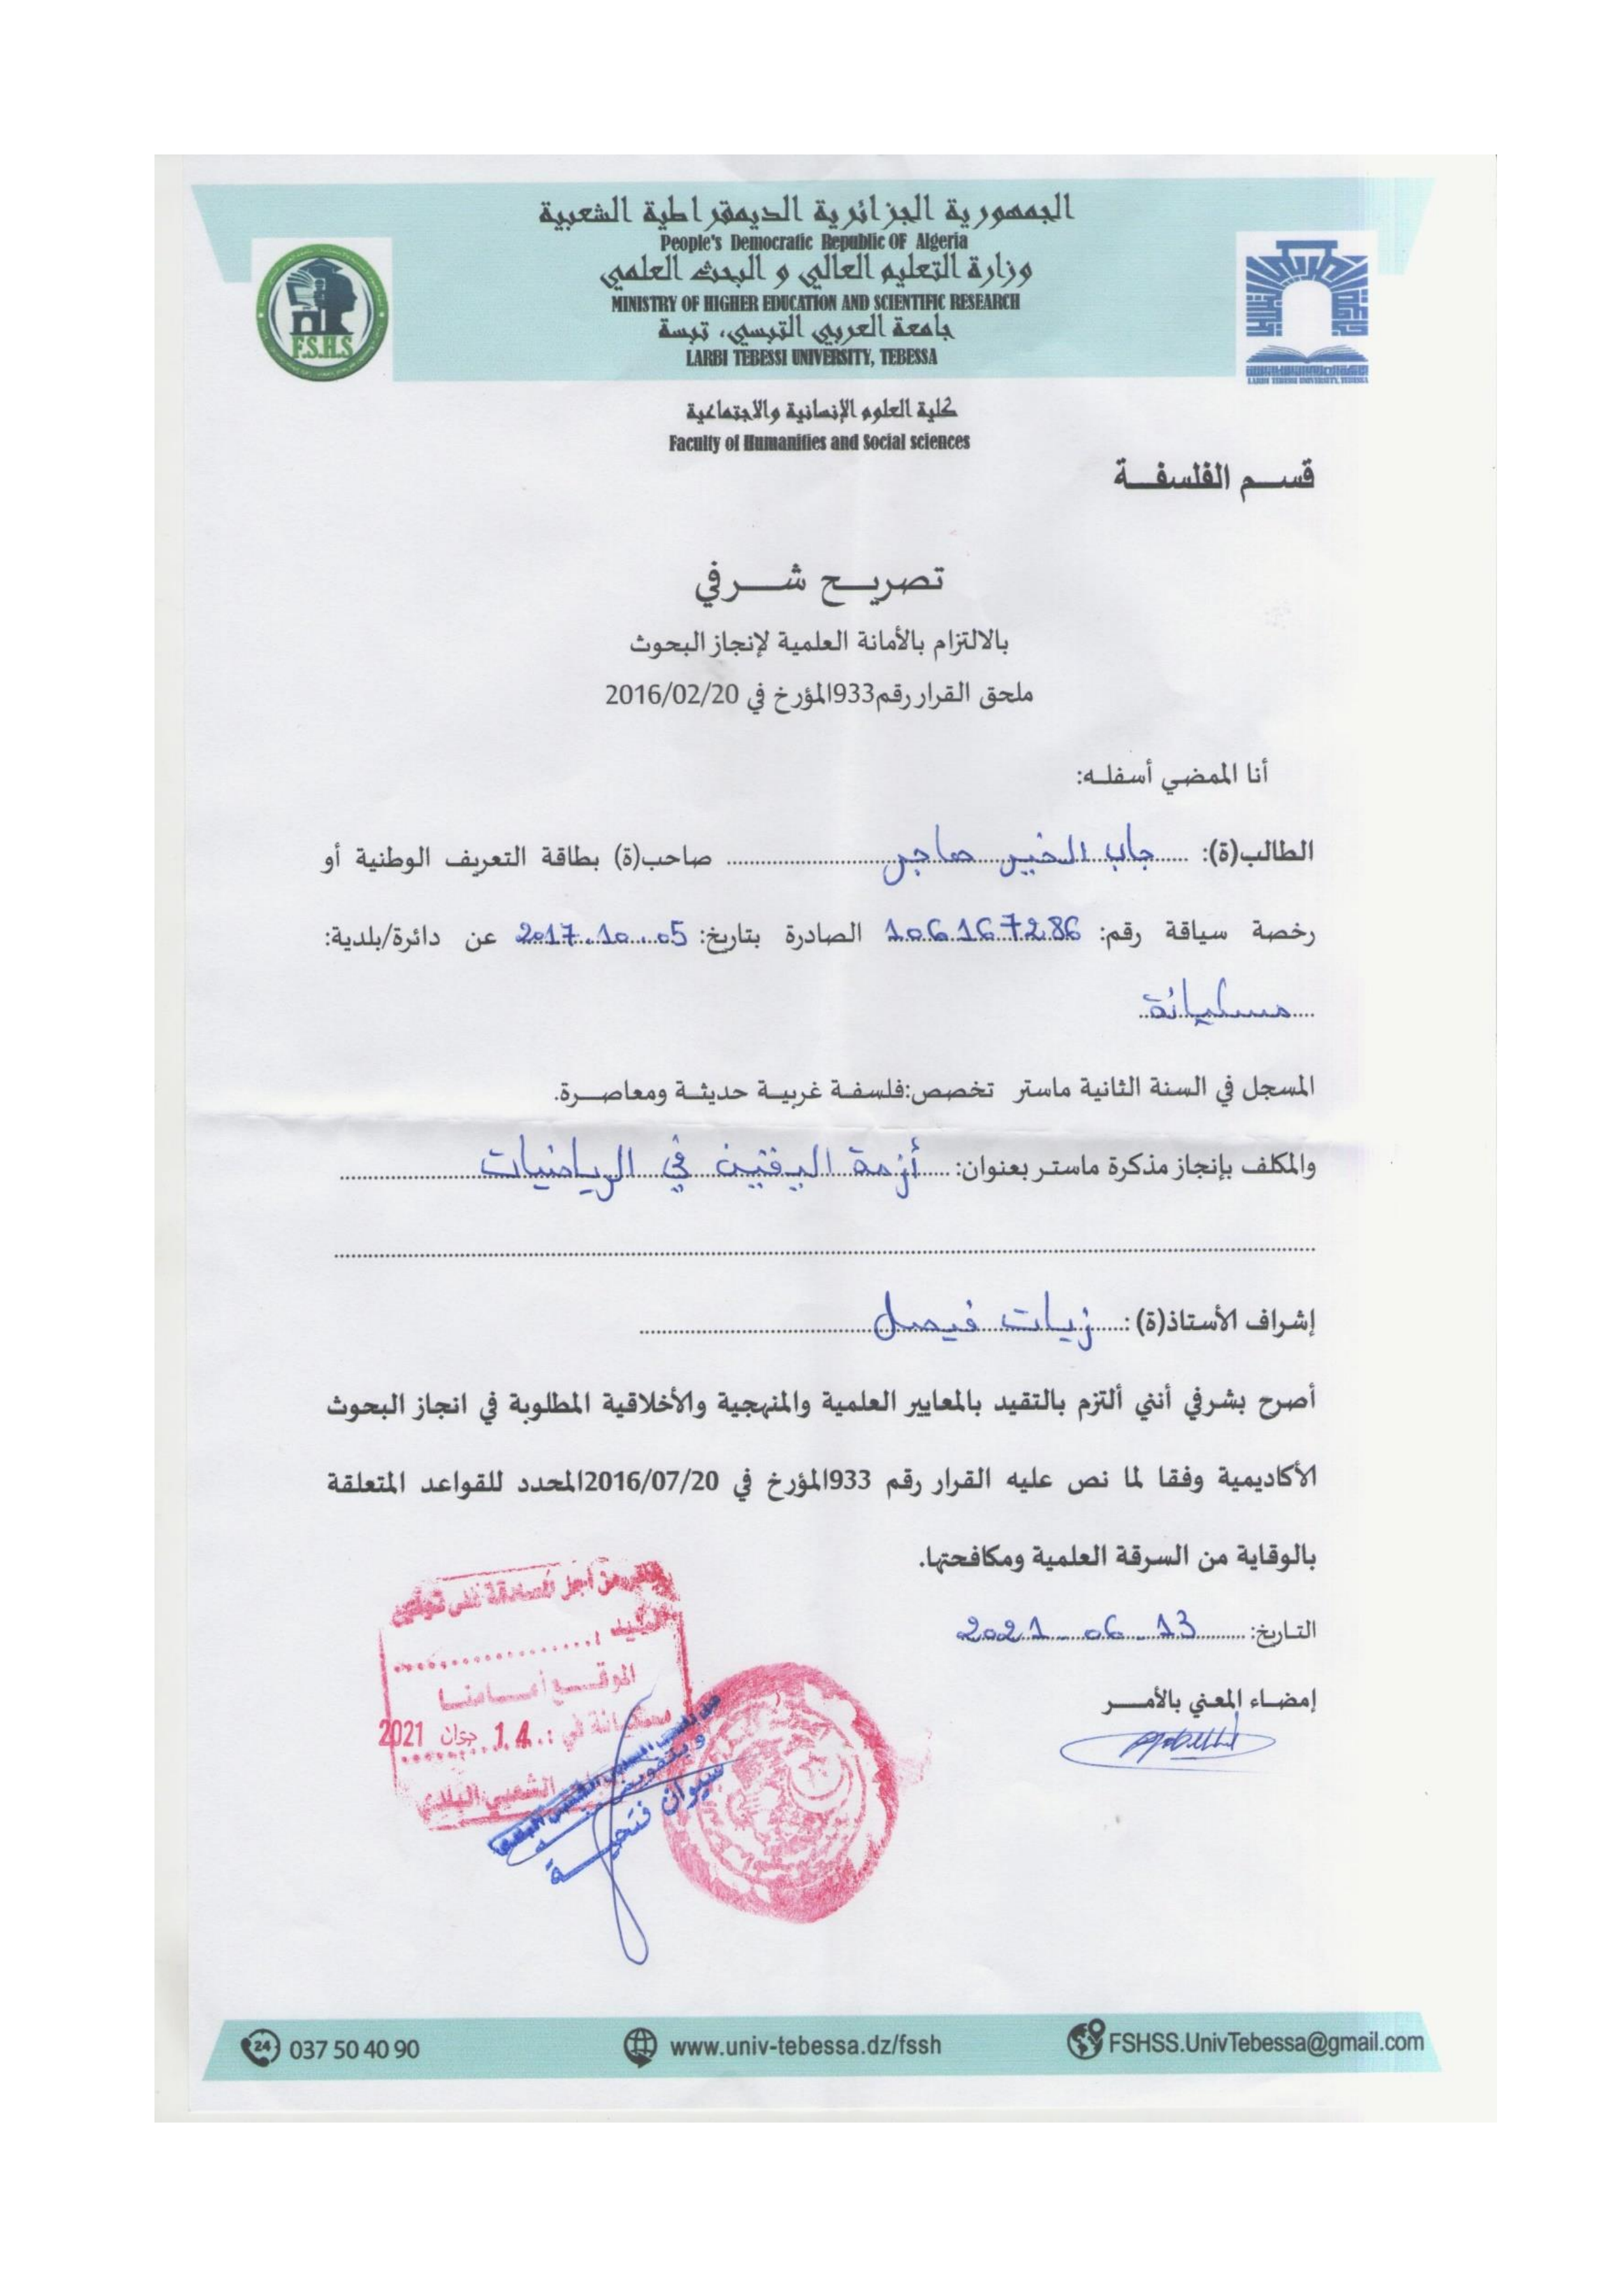 الجمهورية الجزائرية الديمقراطية الشعبية
People's Democratic Republic OF Algeria
وزارة التعليم العالي و البحث العلمي
MINISTRY OF HIGHER EDUCATION AND SCIENTIFIC RESEARCH
جامعة العربي التبسي، تبسة
LARBI TEBESSI UNIVERSITY, TEBESSA
F.S.H.S
LARBI TEBESSI UNIVERSITY, TEBESSA
كلية العلوم الإنسانية والاجتماعية
Faculty of Humanities and Social sciences
قسم الفلسفة
تصريح شرفي
بالالتزام بالأمانة العلمية لإنجاز البحوث
ملحق القرار رقم933المؤرخ في 2016/02/20
أنا الممضي أسفله:
الطالب(ة): جاب الخير هاجر صاحب(ة) بطاقة التعريف الوطنية أو
رخصة سياقة رقم: 106167286 الصادرة بتاريخ: 2017.10.05 عن دائرة/بلدية:
مسكيانة
المسجل في السنة الثانية ماستر تخصص:فلسفة غربية حديثة ومعاصرة.
والمكلف بإنجاز مذكرة ماستر بعنوان: أزمة اليقين في الرياضيات
إشراف الأستاذ(ة): زيات فيصل
أصرح بشرفي أنني ألتزم بالتقيد بالمعايير العلمية والمنهجية والأخلاقية المطلوبة في انجاز البحوث
الأكاديمية وفقا لما نص عليه القرار رقم 933المؤرخ في 2016/07/20المحدد للقواعد المتعلقة
بالوقاية من السرقة العلمية ومكافحتها.
التاريخ: 2021-06-13
إمضاء المعني بالأمر
من أجل المصادقة على توقيع
السيد
الموقع أمامنا
مسكيانة في : 14 جوان 2021
الشعبي البلدي
وبتفويض منه
سيوان فتحية
037 50 40 90
www.univ-tebessa.dz/fssh
FSHSS.UnivTebessa@gmail.com